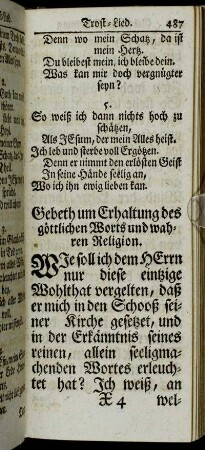 Trost-Lied. 487
Denn wo mein Schatz, da ist
mein Hertz.
Du bleibest mein, ich bleibe dein.
Was kan mir doch vergnügter
seyn?
5.
So weiß ich dann nichts hoch zu
schätzen,
Als JEsum, der mein Alles heist.
Ich leb und sterbe voll Ergötzen.
Denn er nimmt den erlösten Geist
In seine Hände seelig an,
Wo ich ihn ewig lieben kan.
Gebeth um Erhaltung des
göttlichen Worts und wah-
ren Religion.
WJe soll ich dem HErrn
nur diese eintzige
Wohlthat vergelten, daß
er mich in den Schooß sei-
ner Kirche gesetzet, und
in der Erkänntnis seines
reinen, allein seeligma-
chenden Wortes erleuch-
tet hat? Ich weiß, an
X 4 wel-